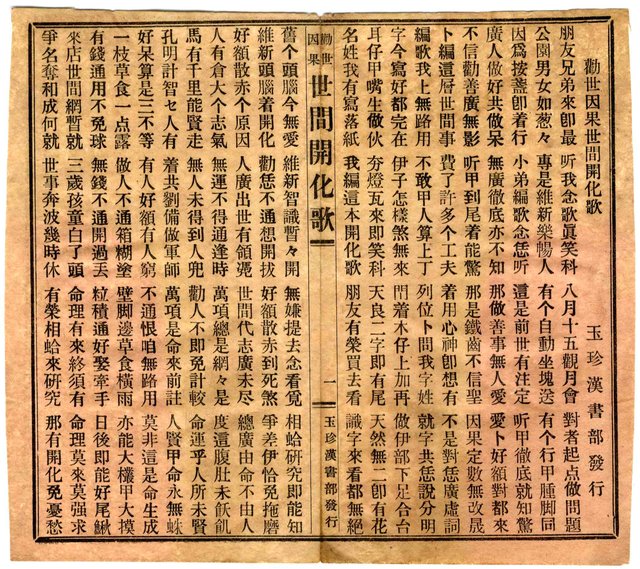 勸世因果世間開化歌 玉珍漢書部發行
朋友兄弟來卽最 听我念歌眞笑科 八月十五觀月會 對者起点做問題
公園男女如葱々 專是維新樂暢人 有个自動坐塊送 有个行甲腫脚同
因爲按盞卽着行 小弟編歌念恁听 這是前世有注定 听甲徹底就知驚
廣人做好共做呆 無廣徹底亦不知 那做善事無人愛 愛卜好額對都來
不信勸善廣無影 听甲到尾着能驚 那是鐵齒不信聖 因果定數無改晟
卜編這層世間事 費了許多个工夫 着用心神卽想有 不是對恁廣虛詞
編歌我上無路用 不敢甲人算上丁 列位卜問我字姓 就字共恁說分明
字今寫好都完在 伊子怎樣煞無來 門着木仔上加再 做伊部下足合台
耳仔甲嘴生做伙 夯燈瓦來卽笑科 天良二字卽有尾 天然無二卽有花
名姓我有寫落紙 我編這本開化歌 朋友有榮買去看 識字來看都無絕
勸世因果 世間開化歌 一 玉珍漢書部發行
舊个頭腦今無愛 維新智識暫々開 無嫌提去念看覓 相蛤研究卽能知
維新頭腦着開化 勸恁不通想開拔 好額散赤到死煞 爭差伊恰免拖磨
好額散赤个原因 人廣出世有領 世間代志廣未尽 總廣由命不由人
人有倉大个志氣 無運不得通逢時 萬項總是網々是 度這腹肚未飫飢
馬有千里能賢走 無人未得到人兜 勸人不卽免計較 命運乎人所未賢
孔明計智セ人有 着共劉備做軍師 萬項是命來前註 人賢甲命永無蛛
好呆算是三不等 有人好額有人窮 不通恨咱無路用 莫非這是命生成
一枝草食一点露 做人不通箱糊塗 壁脚邊草食橫雨 亦能大欉甲大摸
有錢通用不免球 無錢不通開過丟 粒積通好娶牽手 日後卽能好尾鰍
來店世間網暫就 三歲孩童白了頭 命理有來終須有 命理莫來莫强求
爭名奪和成何就 世事奔波幾時休 有榮相蛤來研究 那有開化免憂愁